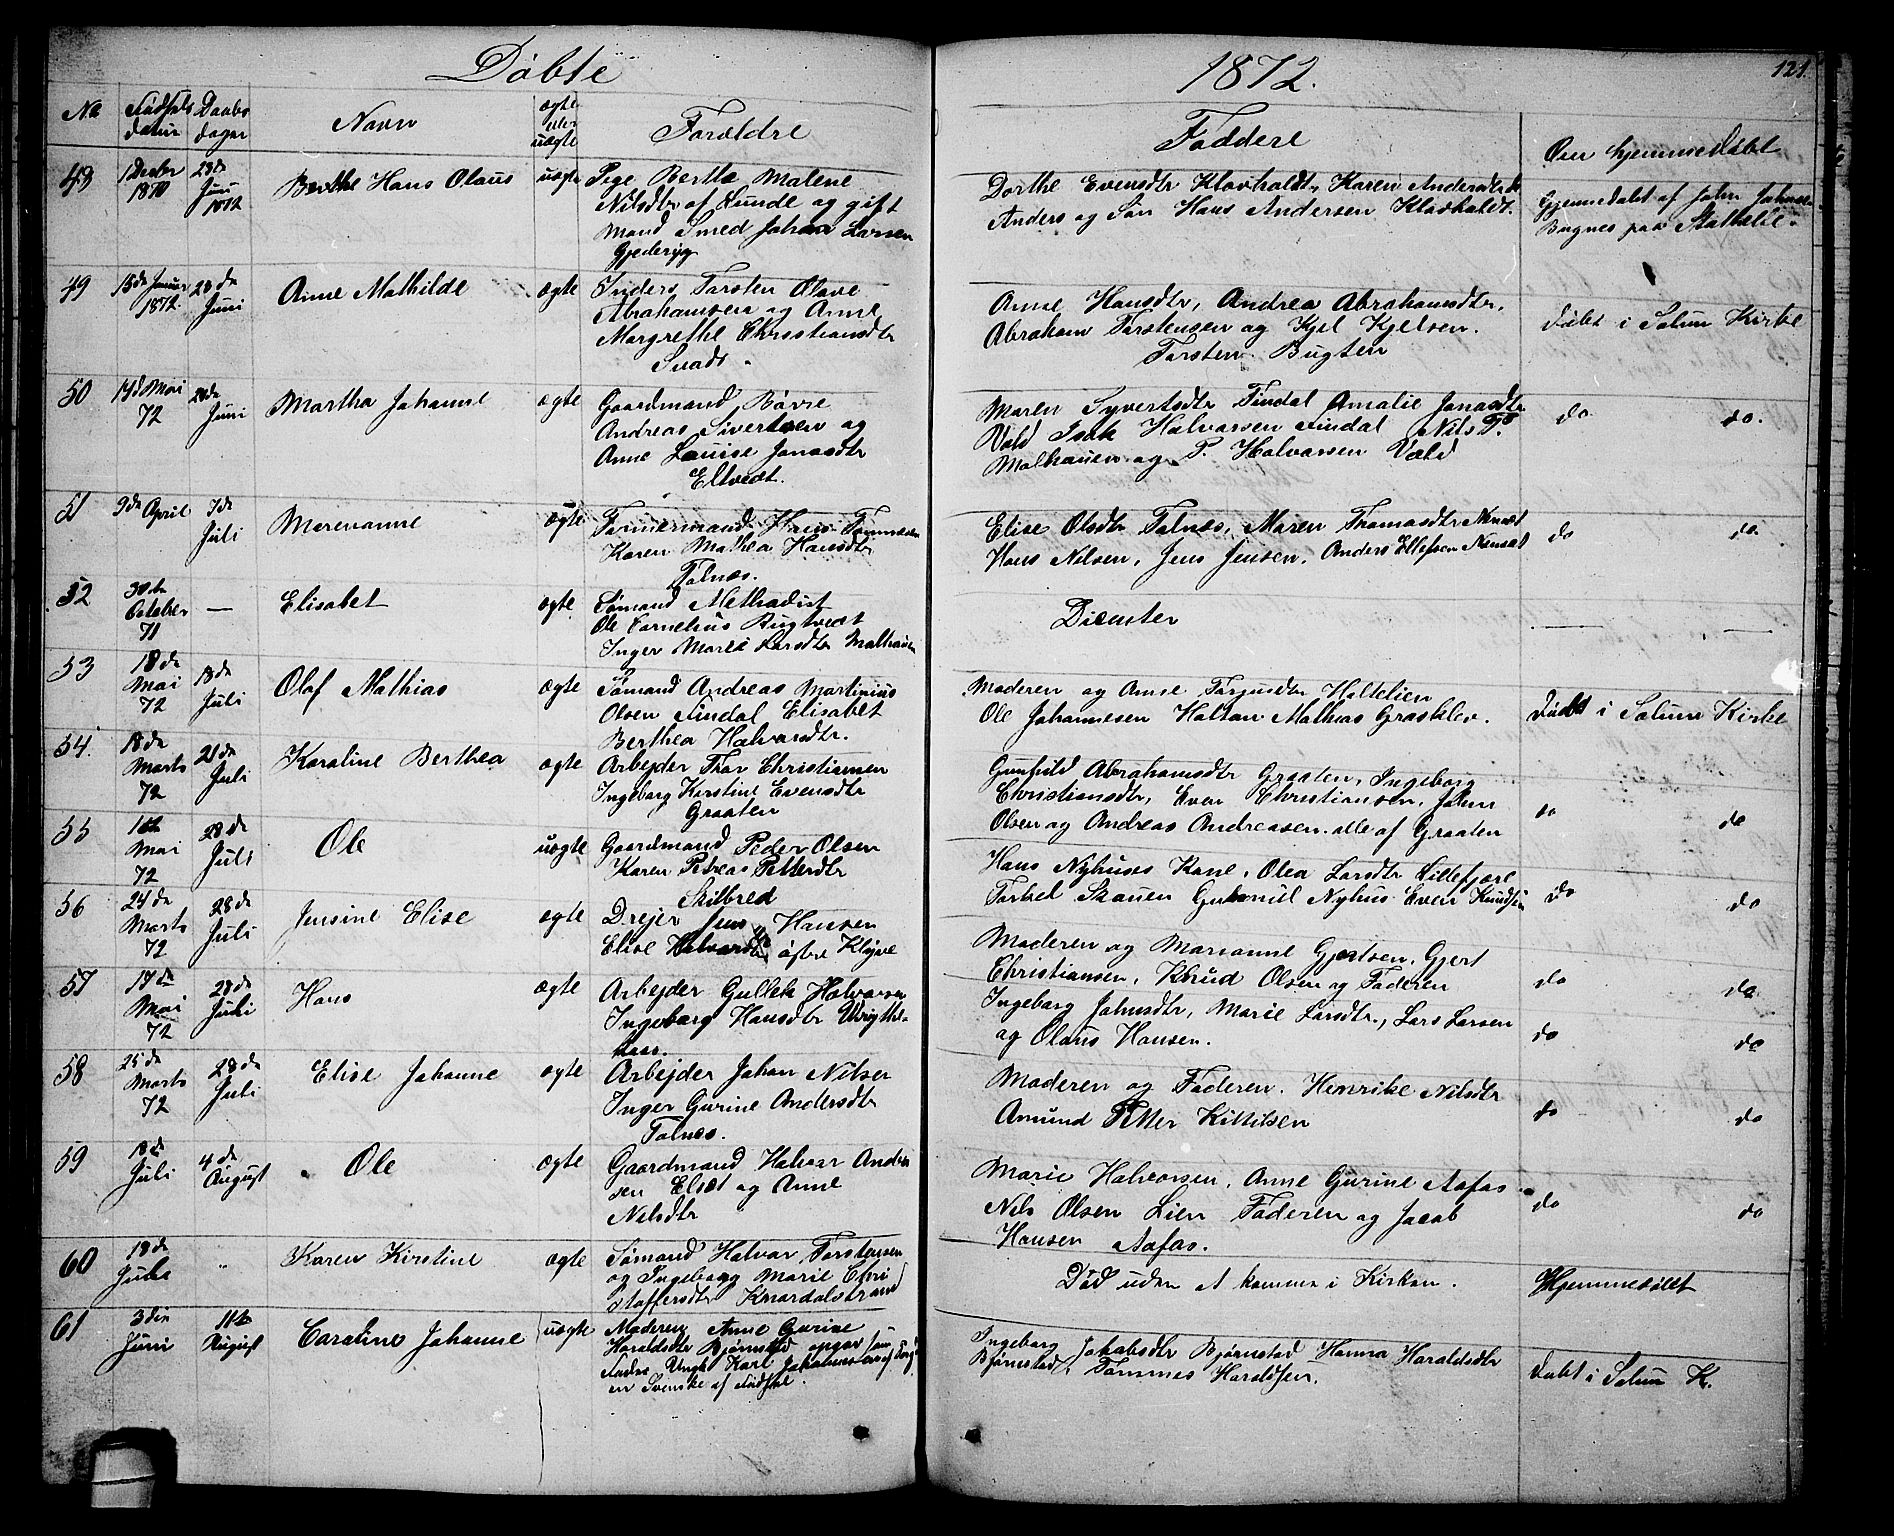 Døbte
1872.
121.
No
Fødsels datum
Daabs dagen
Navn
ægte eller uægte
Forældre
Faddere
Om hjemmedøbt
48
1 Decbr 1870
23de Juni 1872
Berthe Hans Olaus
uægte
Pige Berthe Malene
Nilsdtr af Lunde og gift
Mand Smed Johan Larsen
Gjederyg
Dorthe Evensdtr Klovholdt, Karen Andersdtr do
Anders og Søn Hans Andersen Klovholdt.
Hjemmedøbt af John Johnsen
Bugnes paa Stathelle.
49
15de Januar 1872.
23de Juni
Anne Mathilde
ægte
Inders Torsten Olave
Abrahamsen og Anne
Margrethe Christiansdtr
Svadt
Anne Hansdtr, Andrea Abrahamsdtr,
Abraham Torstensen og Kjel Kjelsen.
Torsten Bugten
Døbt i Solum Kirke
50
14d Mai 72
23de Juni
Martha Johanne
ægte
Gaardmand Børre
Andreas Sivertsen og
Anne Louise Jonasdtr
Eltvedt.
Maren Syvertsdtr Findal Amalie Jonasdtr
Vold Isak Halvorsen Findal Nils P.
Malhauen og P. Halvorsen Vold
do do.
51
9de April
7de Juli
Merevanne
ægte
Tømmermand Hans Tommesen
Karen Mathea Hansdtr
Tolnæs.
Elise Olsdtr Tolnæs, Maren Thomasdtr Nenset
Hans Nilsen, Jens Jensen. Anders Ellefsen Nenset
do do.
52
30te October 71
—
Elisabet
ægte
Sømand Methodist
Ole Cornelius Rugtvedt
Inger Marie Larsdtr Malhauen
Dicenter
53
18de Mai 72
18de Juli
Olaf Mathias
ægte
Sømand Andreas Martinius
Olsen Findal Elisabet
Berthea Halvorsdtr.
Moderen og Anne Torjusdtr Haltelien
Ole Johannesen Haltan Mathias Grasklev.
Døbt i Solum Kirke
54.
18de Marts 72
21de Juli
Karoline Berthea
ægte
Arbejder Thor Christiansen
Ingeborg Kirstine Evensdtr
Graaten
Gunhild Abrahamsdtr Graaten, Ingeborg
Christiansdtr, Even Christiansen, John
Olsen og Andreas Andreasen. alle af Graaten
do do
55
1ste Mai 72
28de Juli
Ole
uægte
Gaardmand Peder Olsen
Karen Petrea Pettersdtr
Skilbred
Hans Nyhuses Kone, Olea Larsdtr Lillefjære
Torkel Skauen Gunnul Nyhus Even Knudsen
do do
56
24de Marts 72
28de Juli
Jensine Elise
ægte
Drejer Jens Hansen
Elise Halvorsdtr østre Klyve
Moderen og Marianne Gjertsen, Gjert
Christiansen, Khrud Olsen og Faderen
do do
57
17de Mai 72
28de Juli
Hans
ægte
Arbejder Gullek Halvorsen
Ingeborg Hansdtr
Ingeborg Johnsdtr, Marie Larsdtr, Lars Larsen
og Olaus Hansen.
do do
58
25de Marts 72
28de Juli
Elise Johanne
ægte
Arbejder Johan Nilsen
Inger Gurine Andersdtr
Tolnæs.
Moderen og Faderen. Henrike Nilsdtr
Amund Petter Kittilsen
do do
59
18de Juli
4de August
Ole
ægte
Gaardmand Halvor Andre
sen Elset og Anne
Nilsdtr
Marie Halvorsen, Anne Gurine Aafos
Nils Olsen Lien Faderen og Jacob
Hansen Aafos.
do do
60
18de Julie
"
Karen Kirstine
ægte
Sømand Halvor Torstensen
og Ingeborg Marie Chri
stoffersdtr Knardalstrand
Død uden at komme i Kirken.
Hjemmedøbt
61
3die Juni
11te August
Caroline Johanne
uægte
Moderen Anne Gurine
Haraldsdtr Bjørnstad opgav som
Fader Ungk Karl Johannes
en Svenske af Fødsel.
Ingeborg Jakobsdtr Bjørnstad Hanna Haraldsdtr
Bjørnstad, Tommes Haraldsen.
Døbt i Solum K.